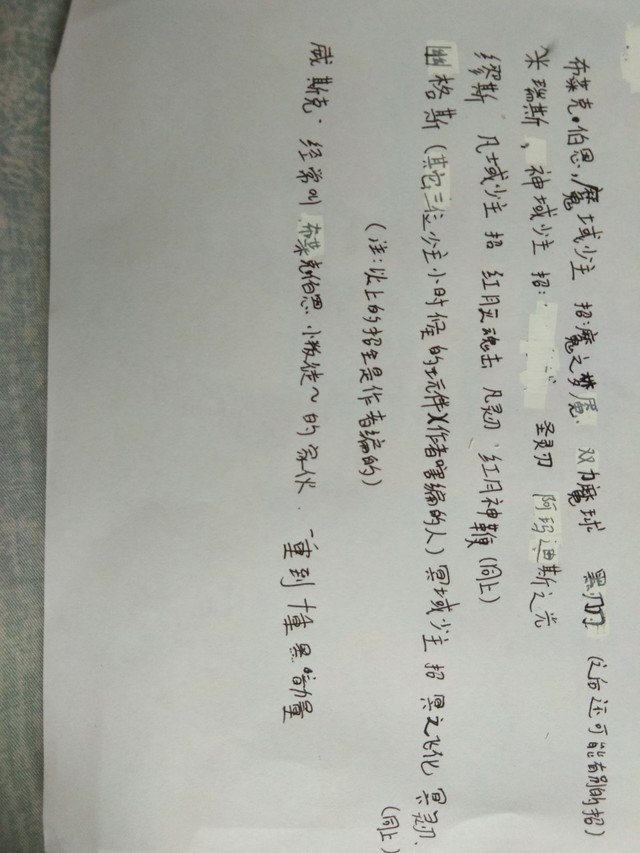 布莱克·伯恩,魔域少主 招:魔之梦魇 双力魔球 黑刃 (之后还可能有别的招)
米瑞斯,神域少主 招: 圣灵刃 阿玛迪斯之光
缪斯 凡域少主 招 红月叉魂击 凡灵刃、红月神鞭(同上)
幽格斯(其它三位少主小时候的玩伴)(作者瞎编的人) 冥域少主 招 冥之飞化 冥灵刃、(同上)
(注:以上的招全是作者编的)
威斯克· 经常叫布莱克伯恩 小叛徒~的家伙. 一重到十重黑暗力量